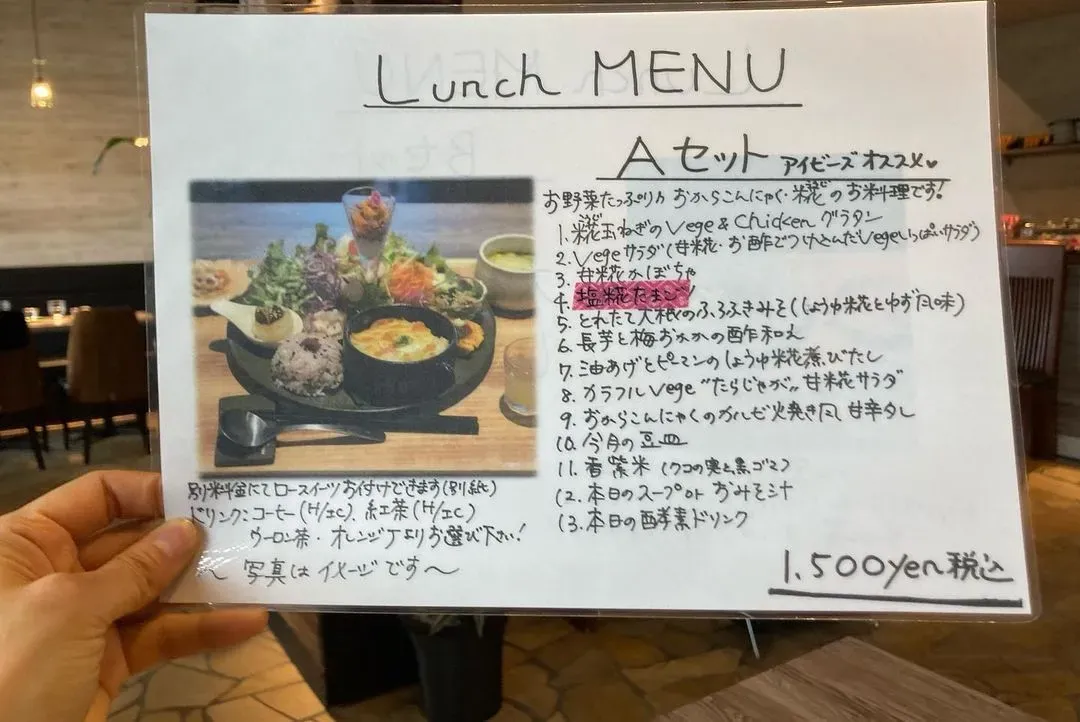 Lunch MENU
Aセット アイビーズオススメ♥
お野菜たっぷり♪ おからこんにゃく・糀のお料理です!
1. 糀玉ねぎのVege & Chicken グラタン
2. Vegeサラダ(甘糀・お酢でつけこんだVegeいっぱいサラダ)
3. 甘糀かぼちゃ
4. 塩糀たまご
5. とれたて大根のふろふきみそ(しょうゆ糀とゆず風味)
6. 長芋と梅おかかの酢和え
7. 油あげとピーマンのしょうゆ糀煮びたし
8. カラフルVege "たらじゃが" 甘糀サラダ
9. おからこんにゃくのカルビ火焼き風 甘辛タレ
10. 今月の豆皿
11. 香紫米(クコの実と黒ゴマ)
12. 本日のスープor おみそ汁
13. 本日の酵素ドリンク
1.500yen税込
別料金にてロースイーツお付けできます(別紙)
ドリンク:コーヒー(H/IC)、紅茶(H/IC)
ウーロン茶・オレンジJよりお選び下さい!
〜 写真はイメージです〜